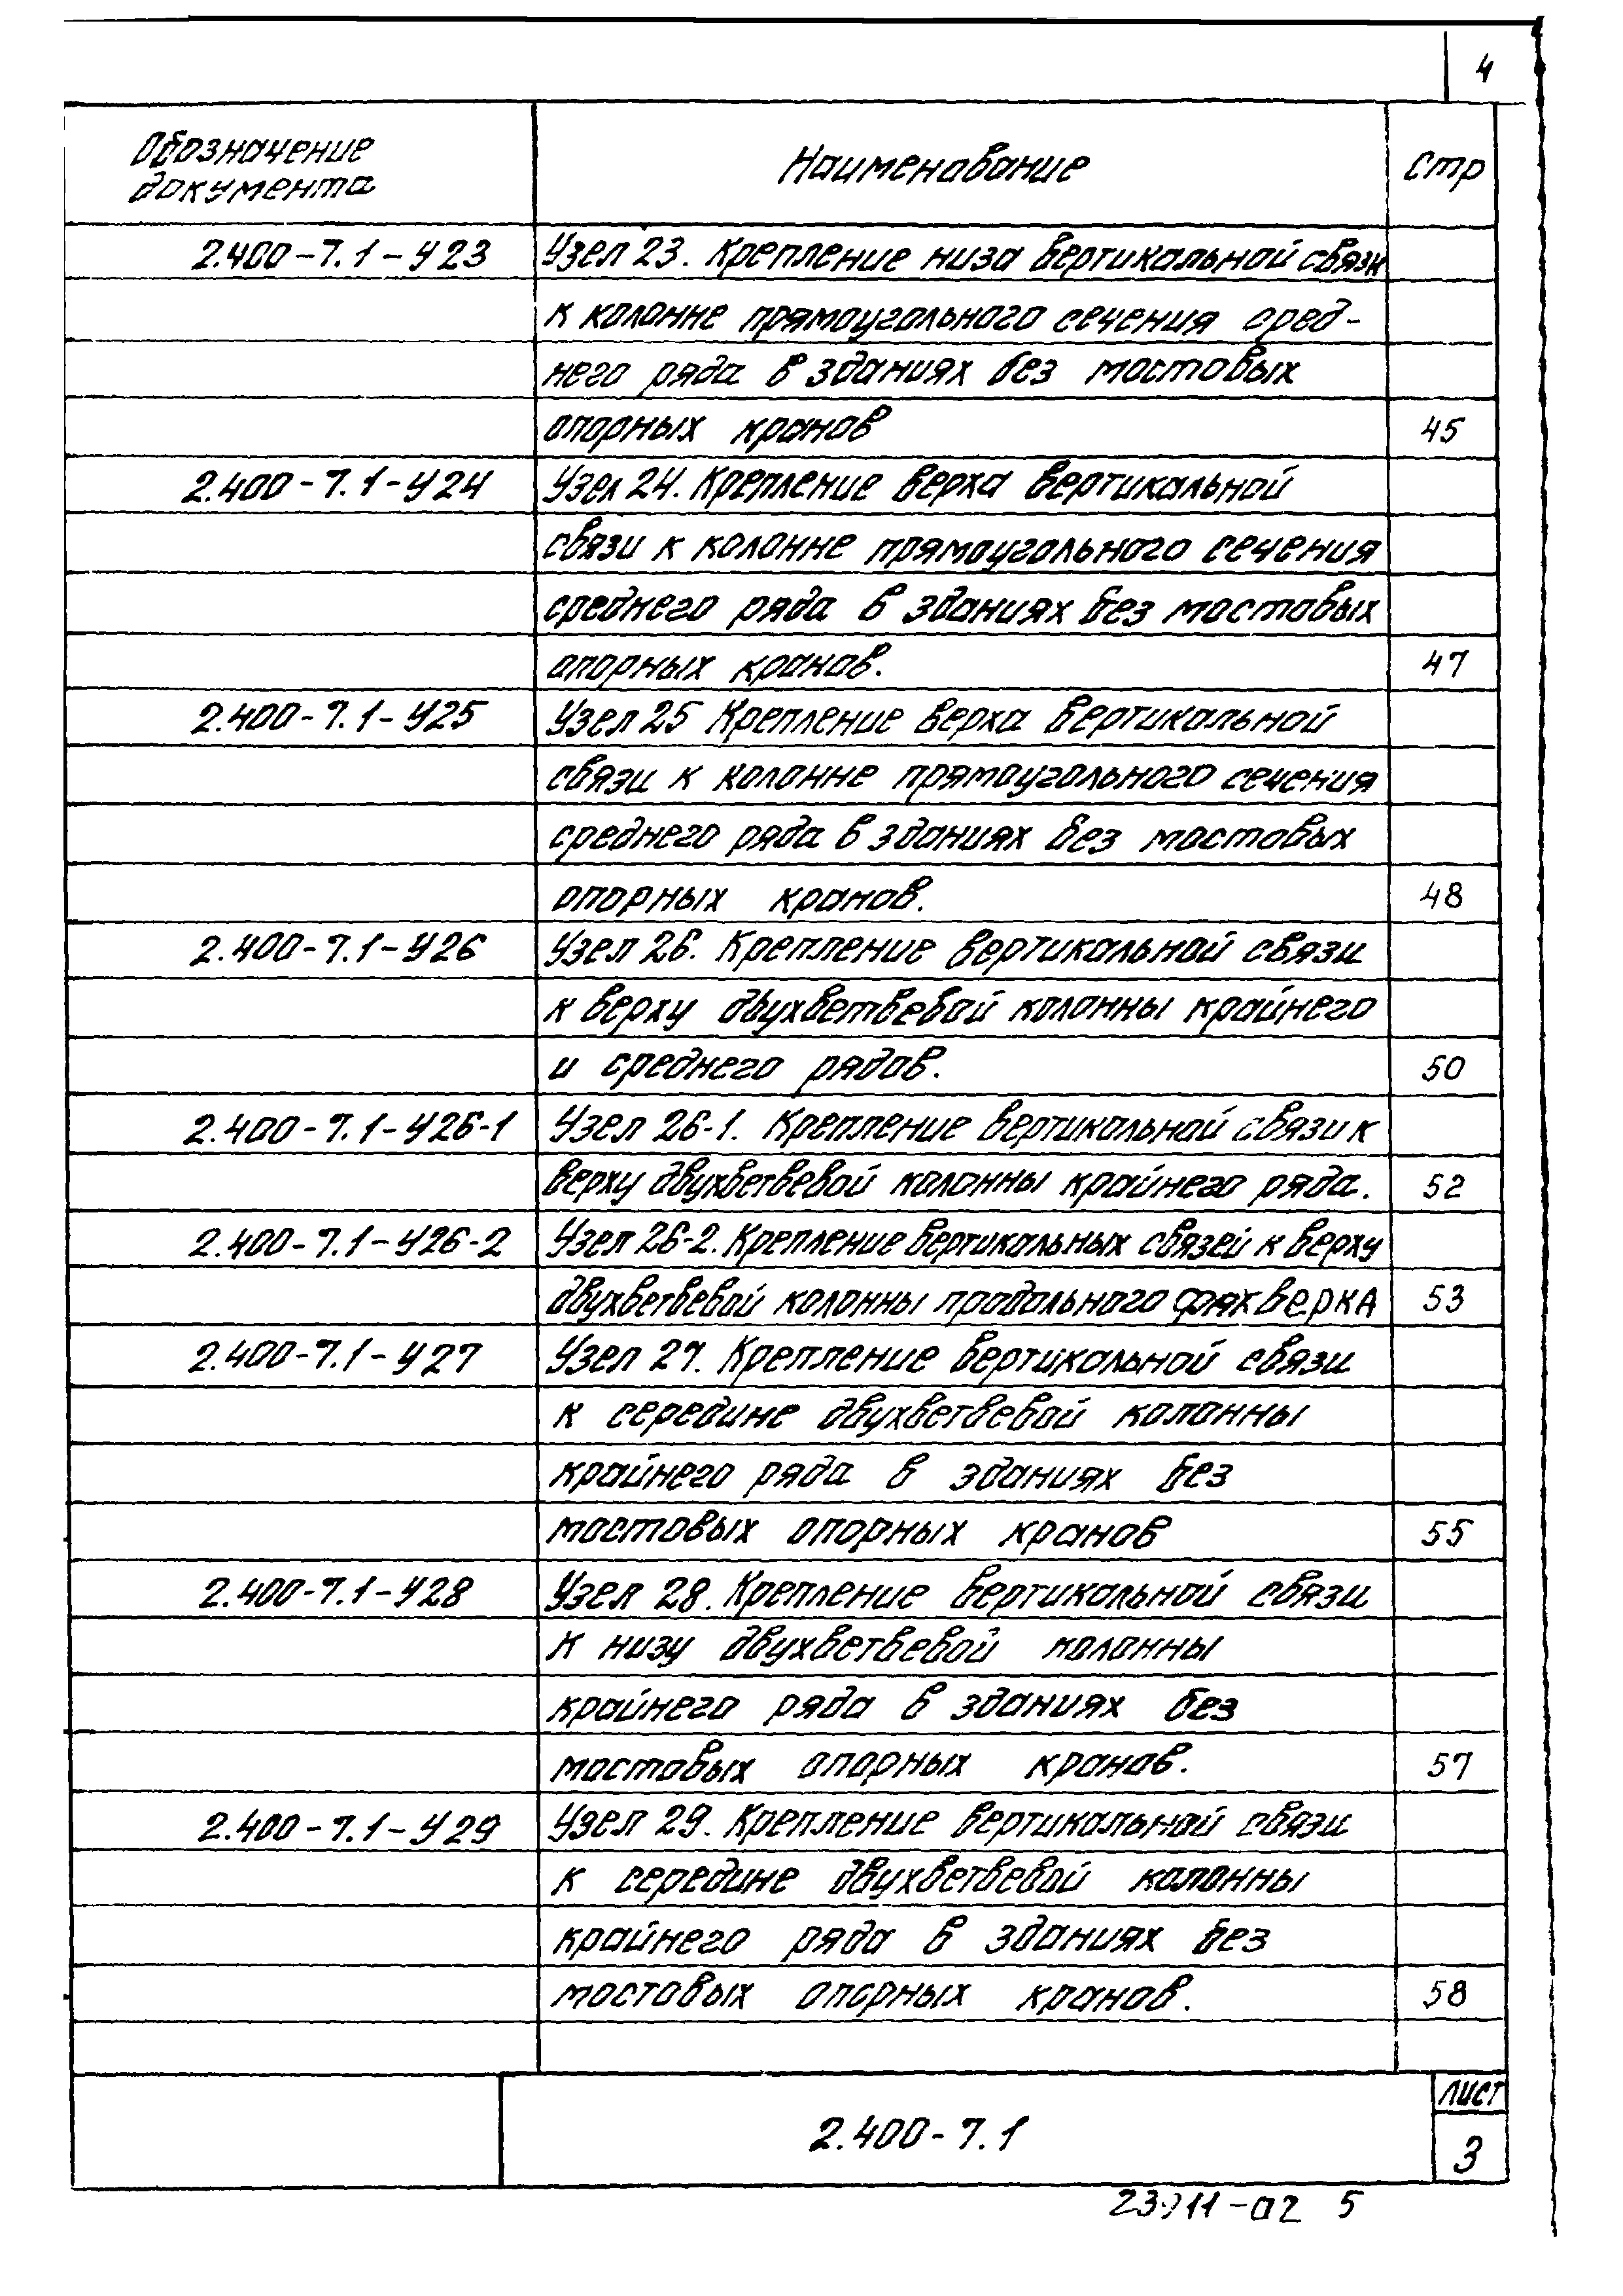 4
Обозначение документа Наименование Стр
2.400-7.1-У23 Узел 23. Крепление низа вертикальной связи
к колонне прямоугольного сечения сред-
него ряда в зданиях без мостовых
опорных кранов 45
2.400-7.1-У24 Узел 24. Крепление верха вертикальной
связи к колонне прямоугольного сечения
среднего ряда в зданиях без мостовых
опорных кранов. 47
2.400-7.1-У25 Узел 25 Крепление верха вертикальной
связи к колонне прямоугольного сечения
среднего ряда в зданиях без мостовых
опорных кранов. 48
2.400-7.1-У26 Узел 26. Крепление вертикальной связи
к верху двухветвевой колонны крайнего
и среднего рядов. 50
2.400-7.1-У26-1 Узел 26-1. Крепление вертикальной связи к
верху двухветвевой колонны крайнего ряда. 52
2.400-7.1-У26-2 Узел 26-2. Крепление вертикальных связей к верху
двухветвевой колонны продольного фахверка 53
2.400-7.1-У27 Узел 27. Крепление вертикальной связи
к середине двухветвевой колонны
крайнего ряда в зданиях без
мостовых опорных кранов 55
2.400-7.1-У28 Узел 28. Крепление вертикальной связи
к низу двухветвевой колонны
крайнего ряда в зданиях без
мостовых опорных кранов. 57
2.400-7.1-У29 Узел 29. Крепление вертикальной связи
к середине двухветвевой колонны
крайнего ряда в зданиях без
мостовых опорных кранов. 58
2.400-7.1
лист
3
5